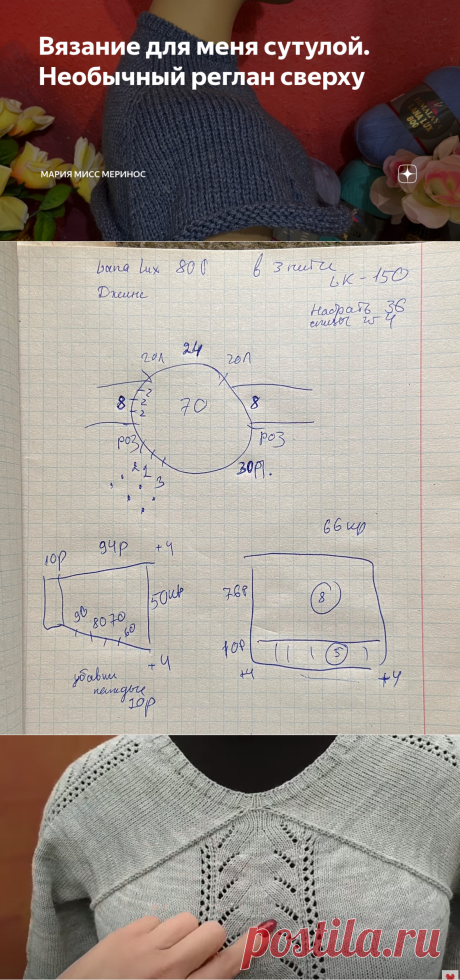 Вязание для меня сутулой.
Необычный реглан сверху
МАРИЯ МИСС МЕРИНОС
Lana lux 800 в 3 нити
LK - 150
Джинс
Набрать 36
спицы № 4
24
20л 20л
2
8 2 70 8
2
роз роз
2 2 3 30р.
66 кр
10р 94р +4
50кр 76р 8
90 80 70 60
10р 5
+4 +4 +4
убавки
каждые
10р
postila.ru